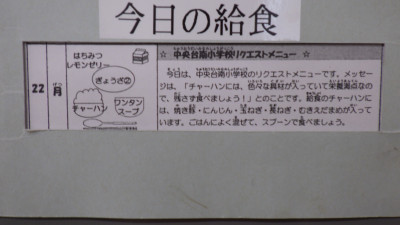 今日の給食
22
月
げつ
はちみつ
レモンゼリー
ぎょうざ②
チャーハン
ワンタン
スープ
☆ 中央台南小学校リクエストメニュー ☆
今日は、中央台南小学校のリクエストメニューです。メッセー
ジは、「チャーハンには、色々な具材が入っていて栄養満点なの
で、残さず食べましょう！」とのことです。給食のチャーハンに
は、焼き豚・にんじん・玉ねぎ・長ねぎ・むきえだまめが入って
います。ごはんによく混ぜて、スプーンで食べましょう。